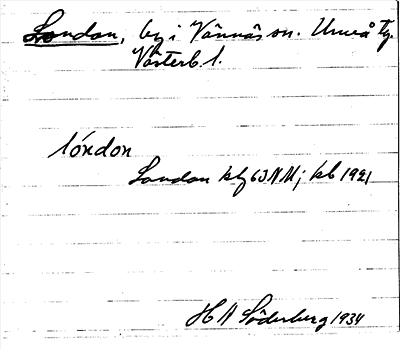 London, by i Vännäs sn. Umeå tg.
Västerb. l.
lóndon
London kby 63 NM; kb 1921
H A Söderberg 1934